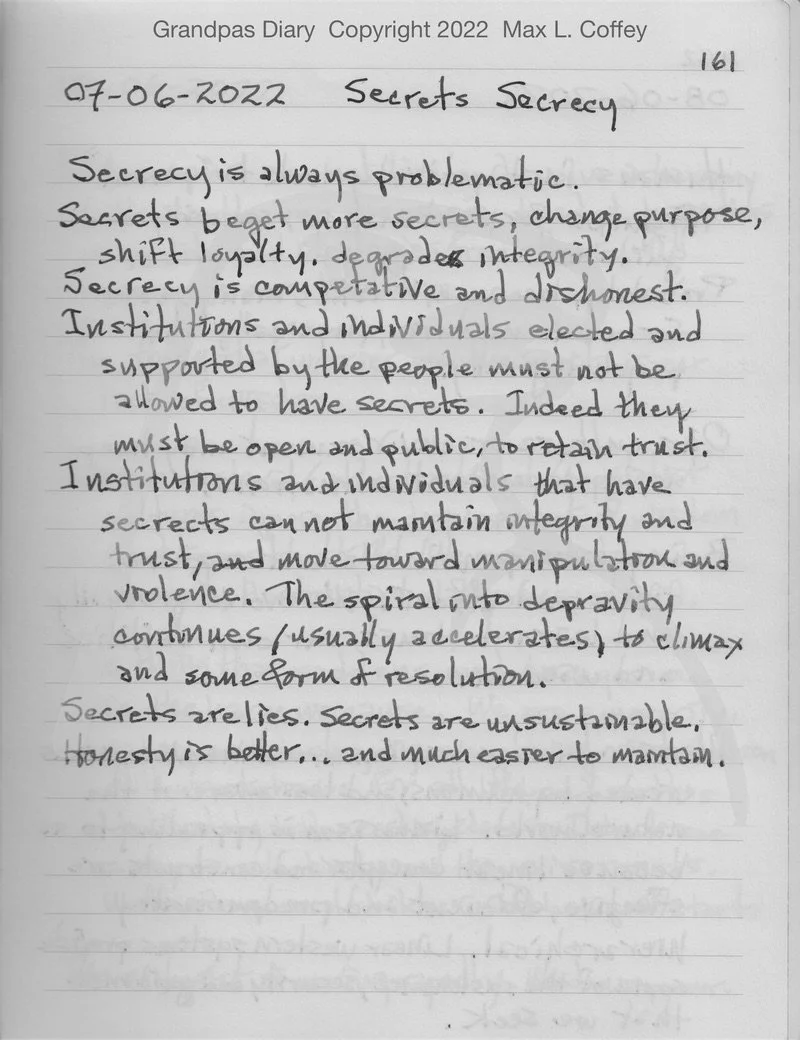 Grandpas Diary Copyright 2022 Max L. Coffey
161
07-06-2022 Secrets Secrecy
Secrecy is always problematic.
Secrets beget more secrets, change purpose,
shift loyalty, degrade integrity.
Secrecy is competative and dishonest.
Institutions and individuals elected and
supported by the people must not be
allowed to have secrets. Indeed they
must be open and public, to retain trust.
Institutions and individuals that have
secrects can not maintain integrity and
trust, and move toward manipulation and
violence. The spiral into depravity
continues (usually accelerates) to climax
and some form of resolution.
Secrets are lies. Secrets are unsustainable.
Honesty is better... and much easier to maintain.